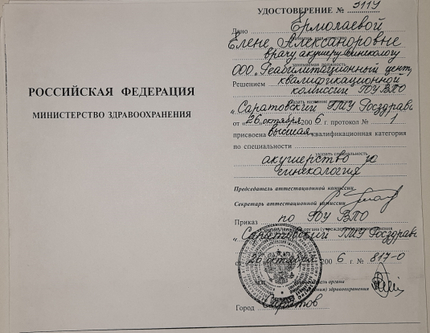 РОССИЙСКАЯ ФЕДЕРАЦИЯ
МИНИСТЕРСТВО ЗДРАВООХРАНЕНИЯ
УДОСТОВЕРЕНИЕ № 3119
Дано Ермолаевой
Елене Александровне
врачу акушеру гинекологу
ООО "Реабилитационный центр"
Решением квалификационной
комиссии ГОУ ВПО
"Саратовский ГМУ Росздрав
от "26 октября 2006 г. протокол № 1
присвоена высшая квалификационная категория
по специальности
акушерство и
гинекология
Председатель аттестационной комиссии
Секретарь аттестационной комиссии
Приказ по ГОУ ВПО
"Саратовский ГМУ Росздрав
26 октября 2006 г. № 817-О
здравоохранения
Город Саратов